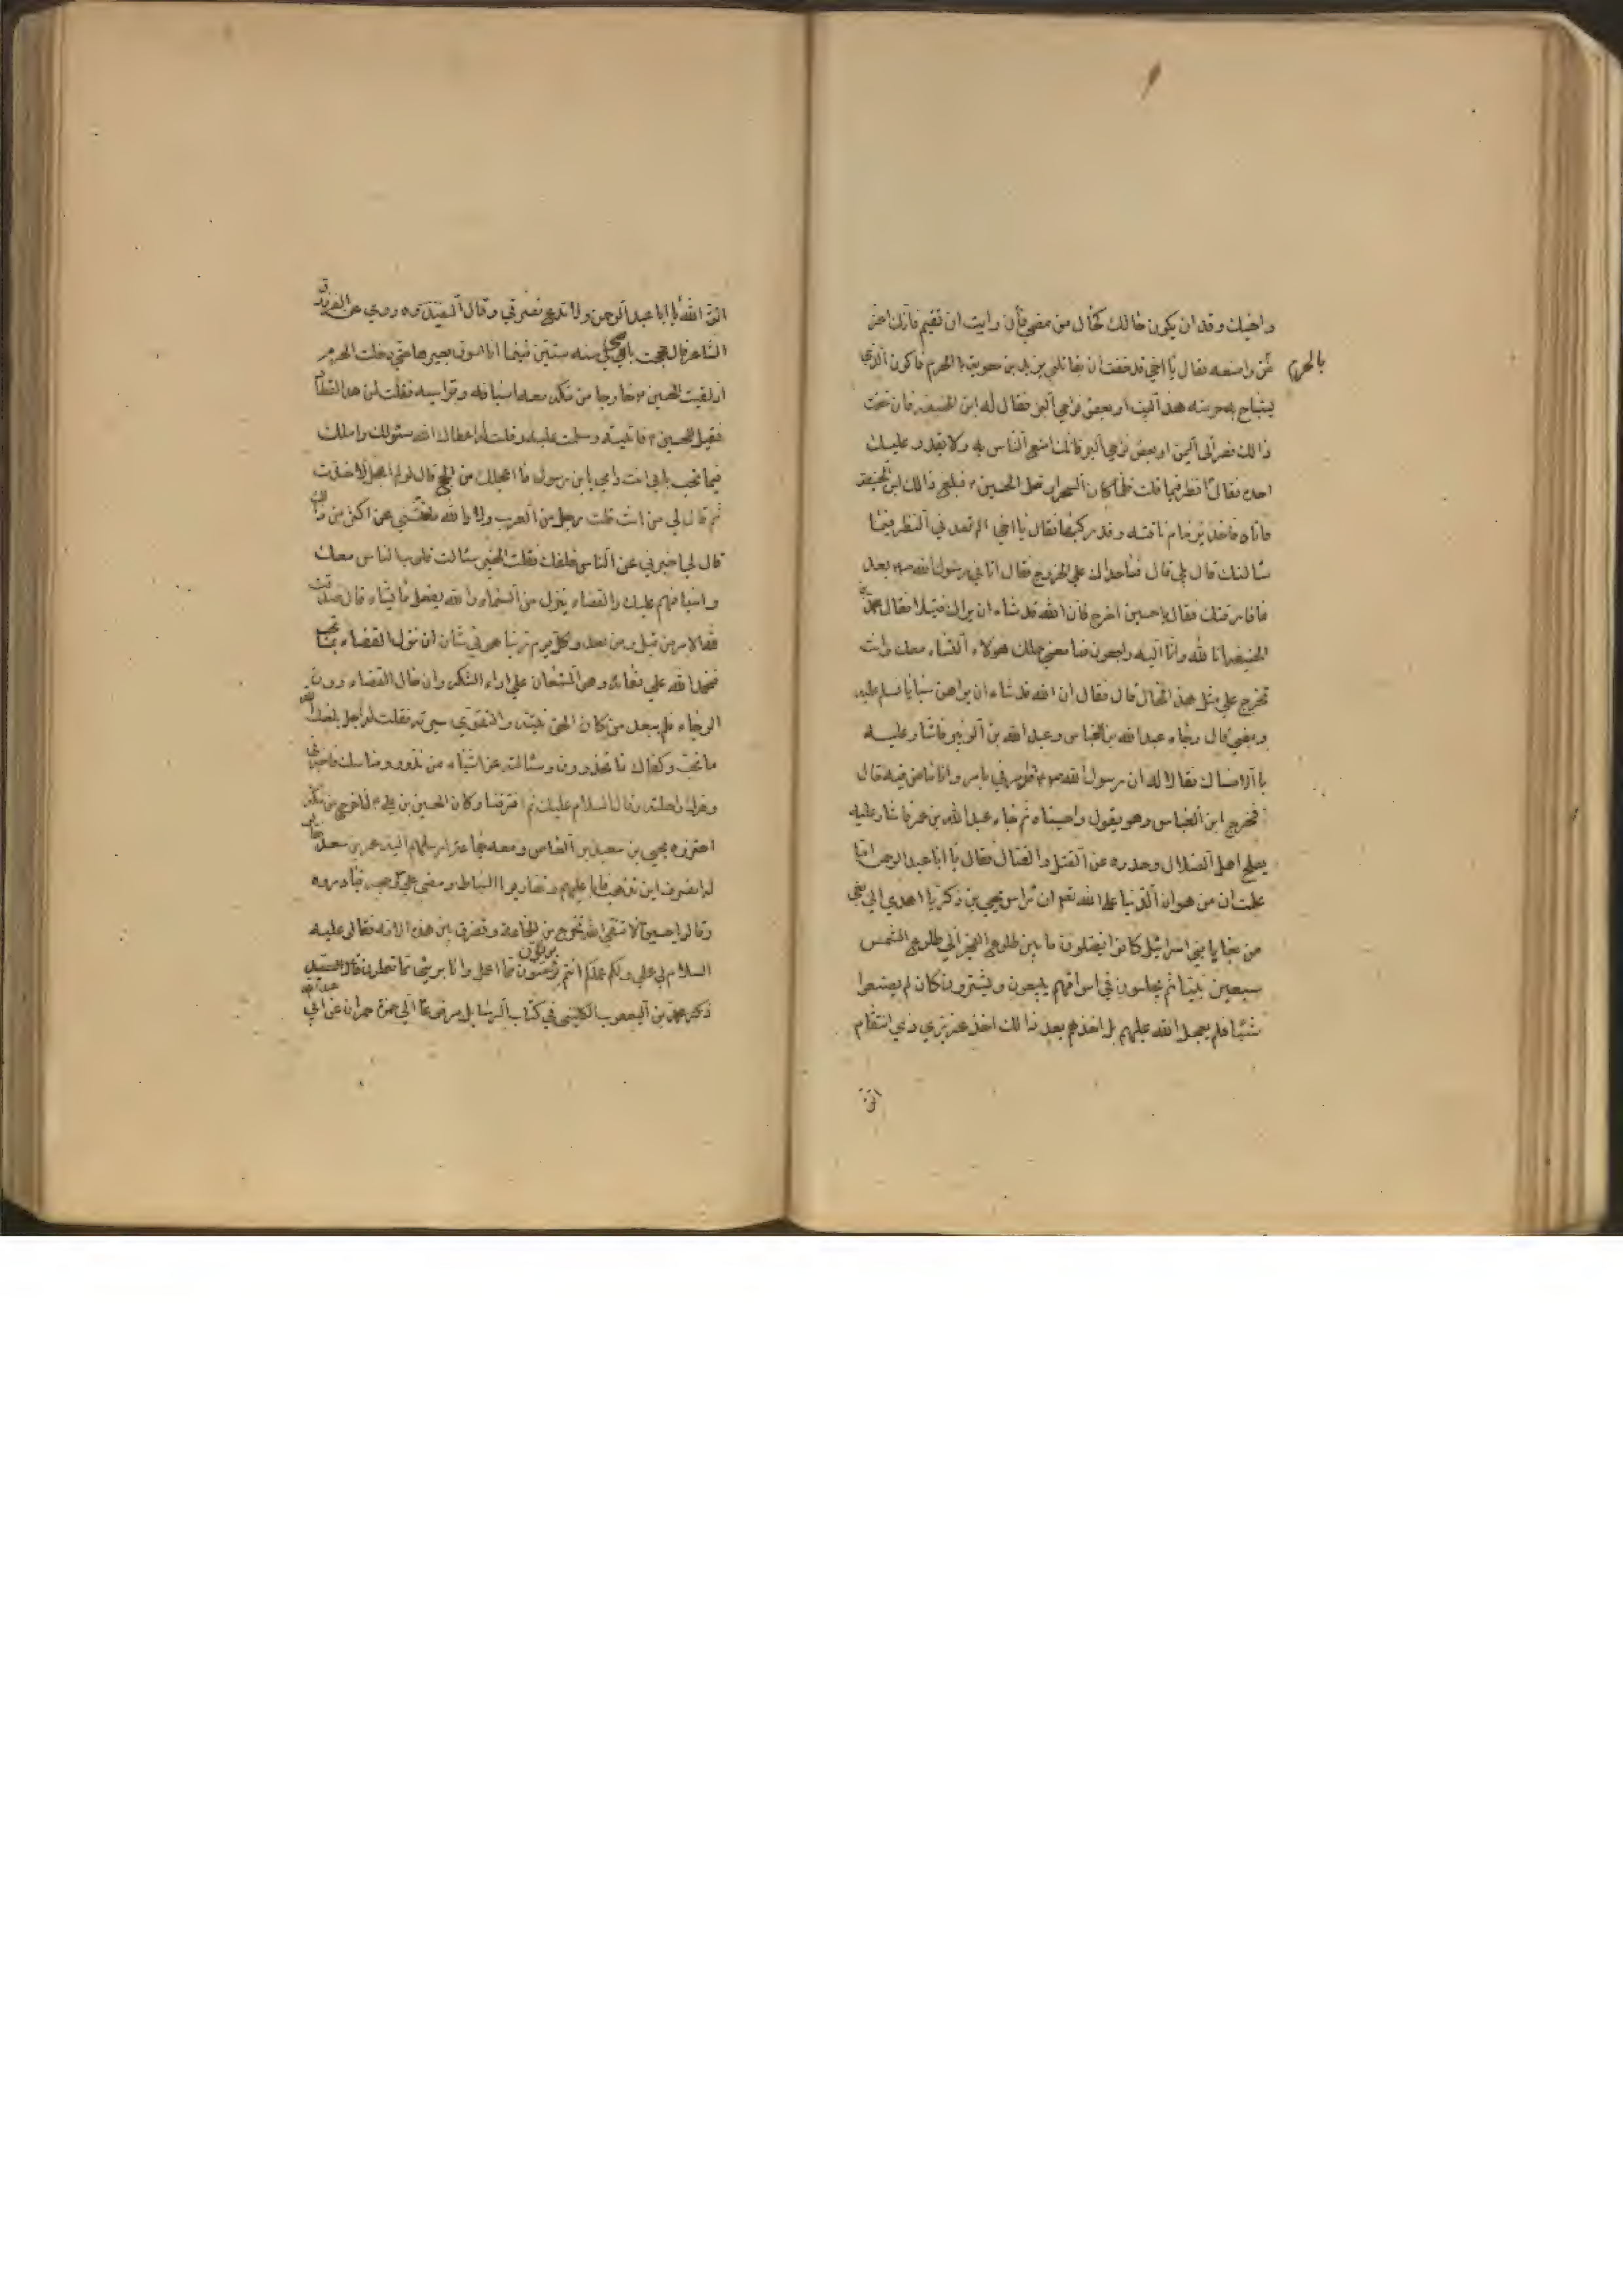 واخيك وقد ان يكون حالك كحال من مضى فأن رايت ان تقيم فانك اعز
من واسعه فقال يا اخي قد خفت ان يغتالني يزيد بن معويه بالحرم فاكون الذي
بالحرم
يستباح به حرمته هذا البيت او بعض نواحي البر فقال له ابن الحنفيه فان خفت
ذالك فصر الى اليمن او بعض نواحي البر فانك امنع الناس به ولا يقدر عليك
احد فقال انظر فيما قلت فلما كان السحر ارتحل الحسين ع فبلغ ذالك ابن الحنفيه
فاتاه فاخذ بزمام ناقته وقد ركبها فقال يا اخي الم تعد ني النظر فيما
سالتك قال بلى قال فما حداك على الخروج فقال اتاني رسول الله ص بعد
ما فارقتك فقال يا حسين اخرج فان الله قد شاء ان يراك قتيلا فقال محمد بن
الحنفيه انا لله وانا اليه راجعون فما معنى حملك هولاء النساء معك وانت
تخرج على مثل هذا الحال قال فقال ان الله قد شاء ان يراهن سبايا فسلم عليه
ومضى قال وجاء عبد الله بن العباس وعبد الله بن الزبير فاشار عليه
بالامساك فقال لهما ان رسول الله ص قد امرني بامر وانا ماض فيه قال
فخرج ابن العباس وهو يقول واحسيناه ثم جاء عبد الله بن عمر فاشار عليه
بصلح اهل الضلال وحذره عن القتل والقتال فقال يا ابا عبد الرحمن اما
علمت ان من هوان الدنيا على الله تعم ان راس يحيى بن ذكريا اهدي الى بغي
من بغايا بني اسرائيل كانوا يقتلون ما بين طلوع الفجر الى طلوع الشمس
سبعين نبيا ثم يجلسون في اسواقهم يبيعون ويشترون كان لم يصنعوا
شيئا فلم يعجل الله عليهم بل اخذهم بعد ذالك اخذ عزيز ذي انتقام
اتق
اتق الله يا ابا عبد الرحمن ولا تدع نصرتي وقال المفيد ره وروي عن الفرزدق
الشاعر قال حججت بامي في سنه ستين فبينما انا اسوق بعيرها حتى دخلت الحرم
اذ لقيت الحسين ع خارجا من مكه معه اسيافه وتراسه فقلت لمن هذا القطار
فقيل للحسين ع فاتيته وسلمت عليه وقلت له اعطاك الله سئولك واملك
فيما تحب بابي انت وامي يابن رسول ما اعجلك من الحج قال لو لم اعجل لاخذت
ثم قال لي من انت قلت رجل من العرب ولا والله ما فتشني عن اكثر من ذالك
قال لي اخبرني عن الناس خلفك فقلت الخبير سئالت قلوب الناس معك
واسيافهم عليك والقضاء ينزل من السماء والله يفعل ما يشاء قال صدقت
لله الامر من قبل ومن بعد وكل يوم ربنا هو في شان ان نزل القضاء بما نحب
فنحمد الله على نعمائه وهو المستعان على اداء الشكر وان حال القضاء دون
الرجاء فلم يبعد من كان الحق نيته والتقوى سيرته فقلت له اجل بلغك الله
ما تحب وكفاك ما تحذر وسئالته عن اشياء من نذور ومناسك فاخبرني
وحرك راحلته وقال السلام عليك ثم افترقنا وكان الحسين بن علي ع لما خرج من مكه
اعترضه يحيى بن سعيد بن العاص ومعه جماعة ارسلهم اليه عمر بن سعد
له انصرف اين تذهب فابا عليهم وتضاربوا السياط ومضى على وجهه فبادروه
وقالوا يا حسين الا تتقي الله تخرج من الجماعة وتفرق بين هذه الامه فقال عليه
السلام لي عملي ولكم عملكم انتم بريئون مما اعمل وانا بريئ مما تعملون قال السيد
ذكر محمد بن اليعقوب الكليني في كتاب الرسايل مرفوعا الى حمزة حمران عن ابي
عبد الله